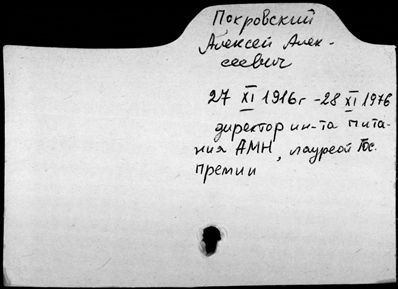 Покровский
Алексей Алек-
сеевич
27 XI 1916г - 28 XI 1976
директор ин-та пита-
ния АМН, лауреат Гос.
премии